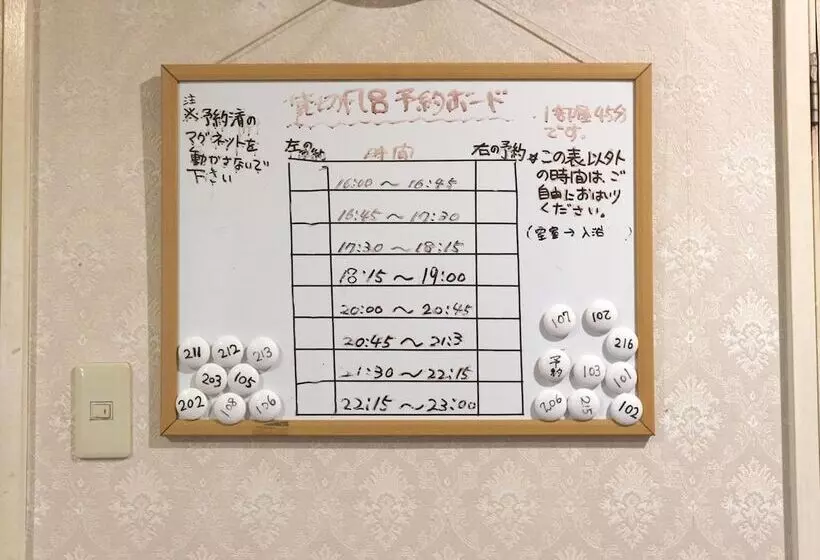 貸切風呂予約ボード
注
※予約済の
マグネットを
動かさないで
下さい
1部屋45分
です。
左の予約
時間
右の予約
※この表以外
の時間は、ご
自由におはいり
ください。
(空室→入浴 )
16:00 ～ 16:45
16:45 ～ 17:30
17:30 ～ 18:15
18:15 ～ 19:00
20:00 ～ 20:45
20:45 ～ 21:3
21:30 ～ 22:15
22:15 ～ 23:00
211 212 213
203 105
202 108 106
107 201
216
予約 103 101
206 215 102